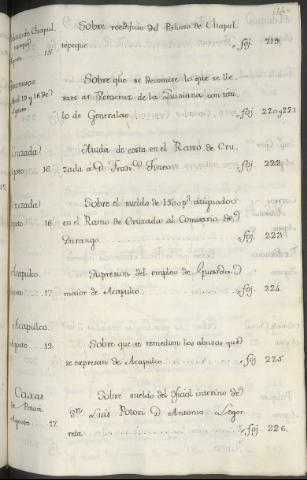 Sobre reedificio del Palacio de Chapul
tepeque foj. 219.
Agosto 18.
Sobre que se decomise lo que se lle
vare al Veracruz de la Luisiana, con titu
lo de Generales foj. 220 y 221
Cruzada)
Ayuda de costa en el Ramo de Cru
agosto 16.
zada a Dn. Franco. foj. 222.
Cruzada)
Sobre el sueldo de 1500 ps. asignados
agosto 16.
en el Ramo de Cruzada al Comisario de
Durango foj. 223
Acapulco.
Supresion del empleo de Guarda
agosto 17.
maior de Acapulco foj. 224.
Acapulco.
agosto 12.
Sobre que se remedien los abusos que
se expresan de Acapulco foj. 225.
Caxas
de Potosi
Sobre sueldo del oficial interino de
Agosto 17.
Sn. Luis Potosi D. Antonio Legor
reta foj. 226.